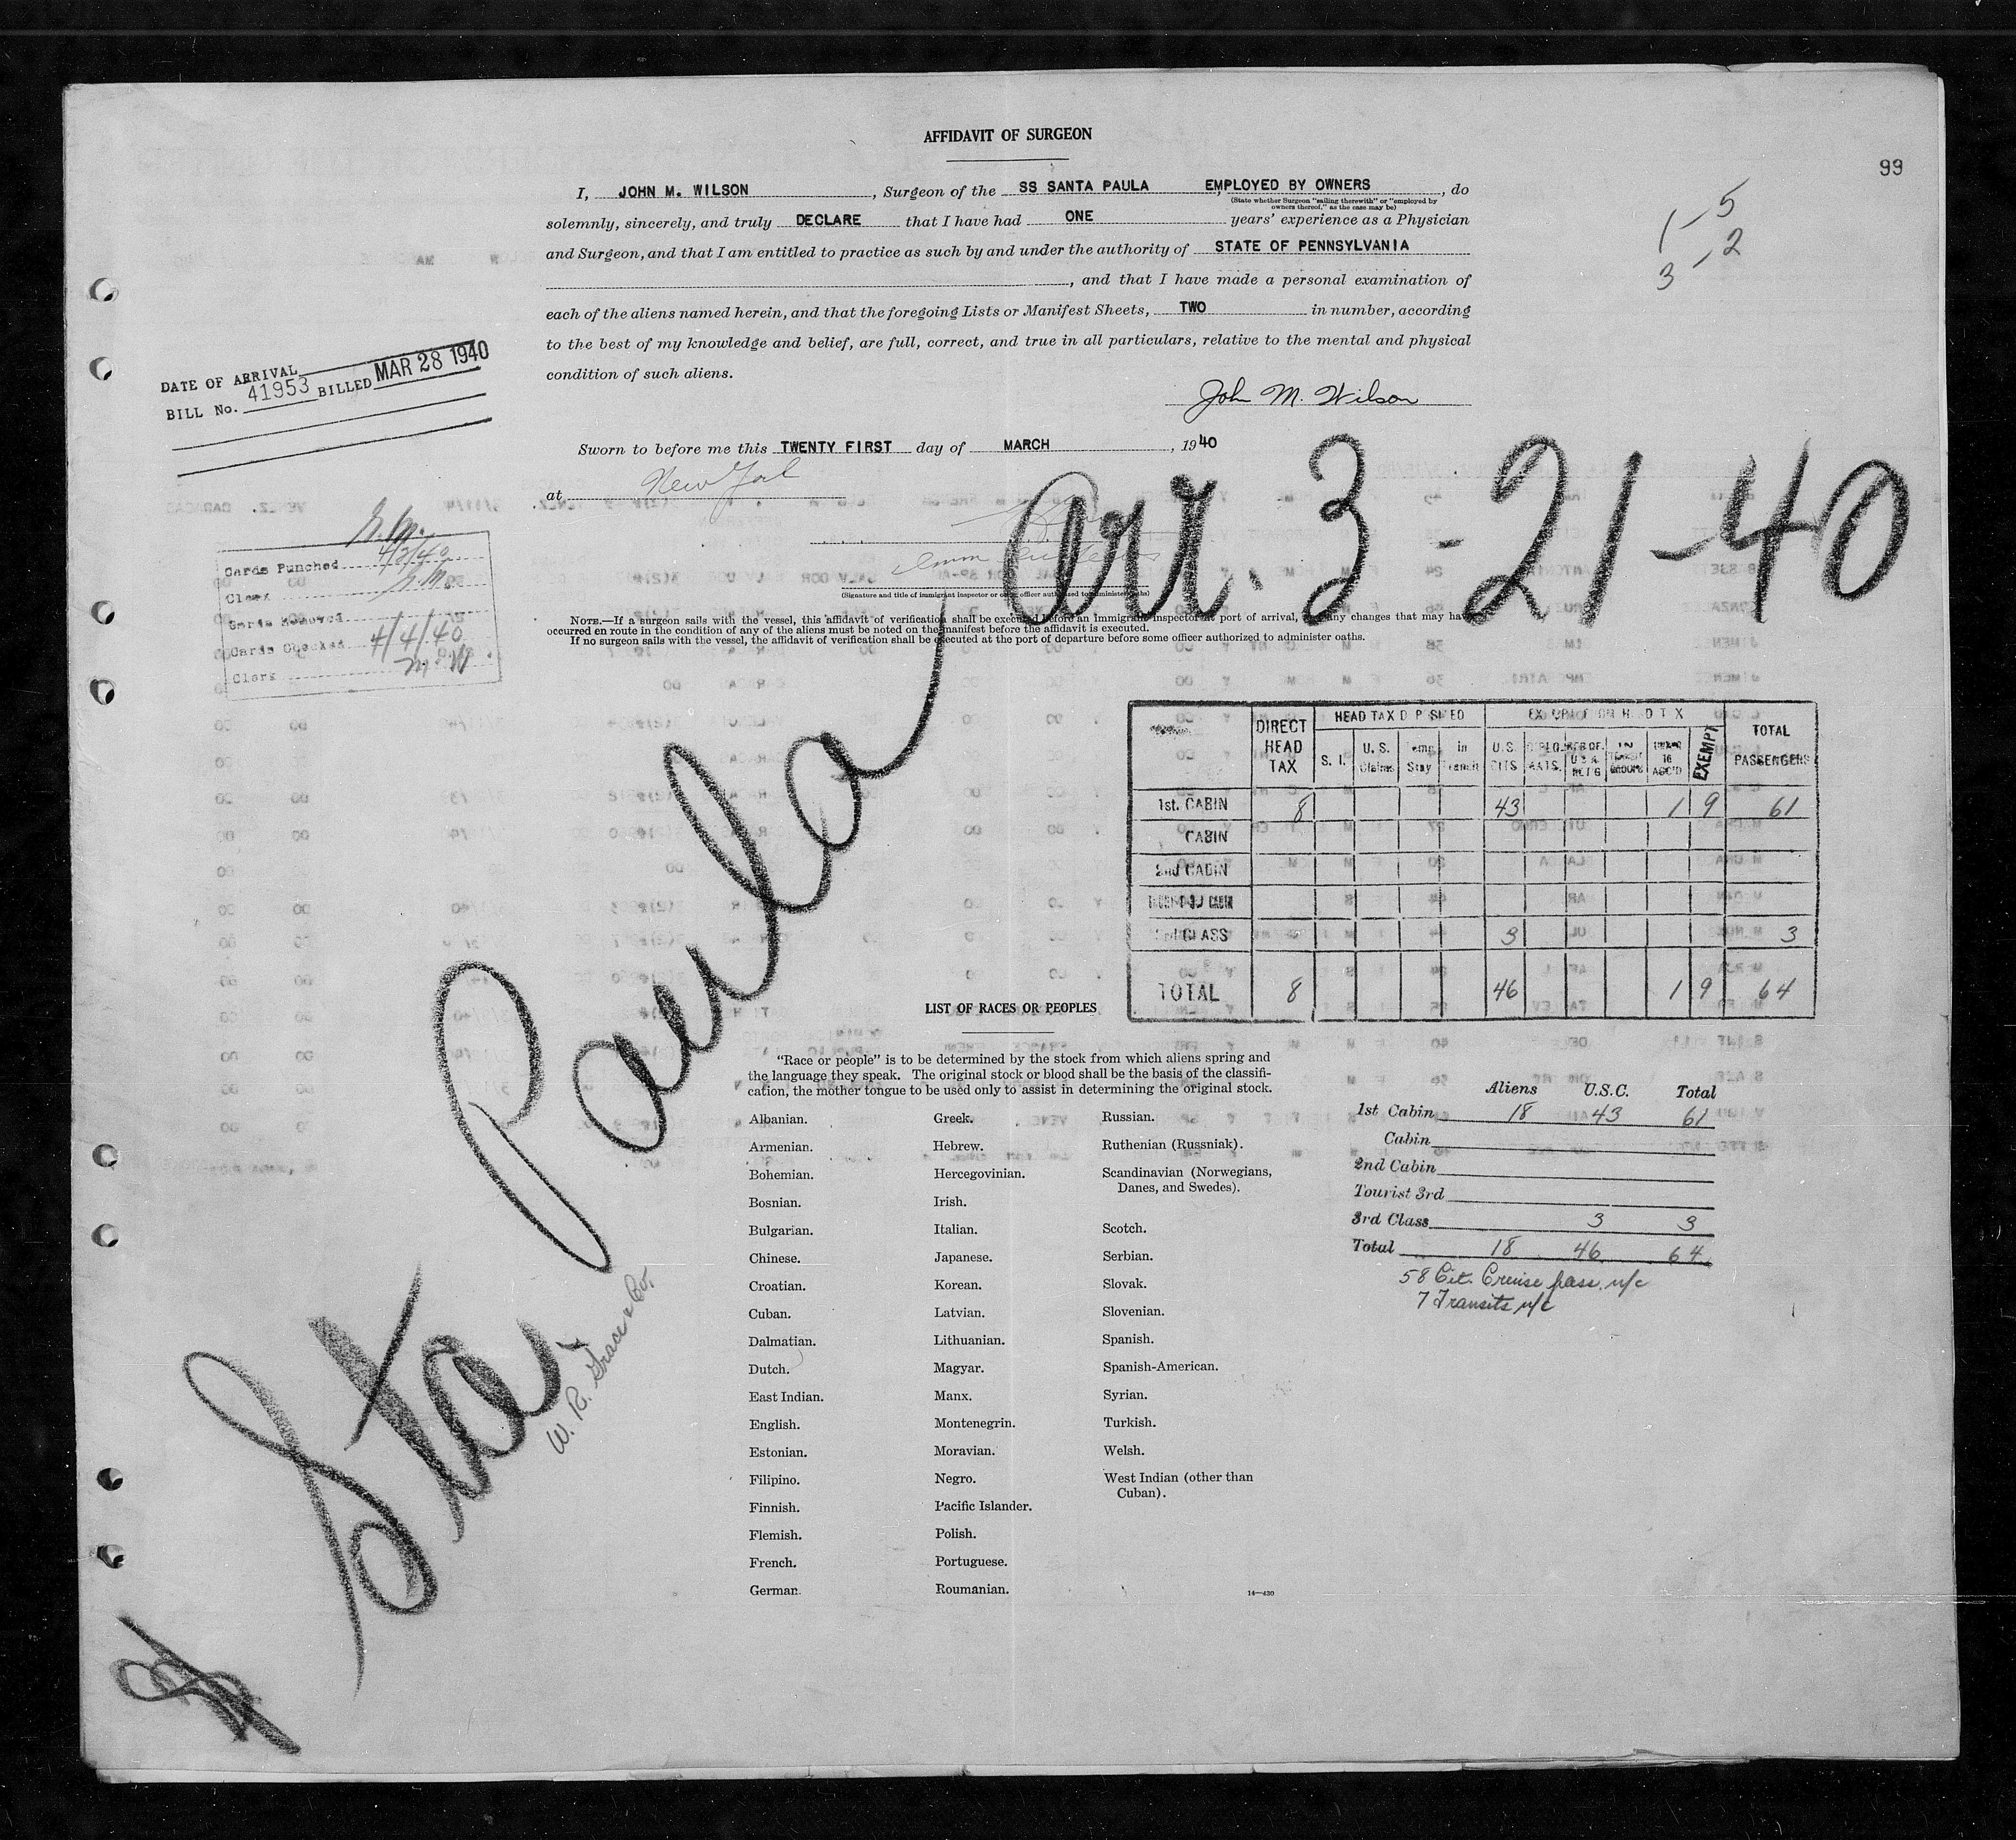 AFFIDAVIT OF SURGEON
99
I, JOHN M. WILSON, Surgeon of the SS SANTA PAULA EMPLOYED BY OWNERS, do
(State whether Surgeon "sailing therewith" or "employed by
owners thereof," as the case may be)
solemnly, sincerely, and truly DECLARE that I have had ONE years' experience as a Physician
and Surgeon, and that I am entitled to practice as such by and under the authority of STATE OF PENNSYLVANIA
, and that I have made a personal examination of
each of the aliens named herein, and that the foregoing Lists or Manifest Sheets, TWO in number, according
to the best of my knowledge and belief, are full, correct, and true in all particulars, relative to the mental and physical
condition of such aliens.
1-5
3-2
John M. Wilson
Sworn to before me this TWENTY FIRST day of MARCH, 1940
at New York
DATE OF ARRIVAL
BILL No. 41953 BILLED MAR 28 1940
Cards Punched 4/3/40
Clerk
Cards Removed
Cards Checked 4/4/40
Clerk
arr. 3-21-40
(Signature and title of immigrant inspector or other officer authorized to administer oaths)
NOTE.—If a surgeon sails with the vessel, this affidavit of verification shall be executed before an immigrant inspector at port of arrival, any changes that may have
occurred en route in the condition of any of the aliens must be noted on the manifest before the affidavit is executed.
If no surgeon sails with the vessel, the affidavit of verification shall be executed at the port of departure before some officer authorized to administer oaths.
DIRECT HEAD TAX
HEAD TAX
S. I.
U. S. Claims
Temp Stay
U. S. CITS
EXEMPT
TOTAL PASSENGERS
1st. CABIN 8 43 1 9 61
CABIN
2nd CABIN
3rd CLASS 3 3
TOTAL 8 46 1 9 64
Sta. Paula
W. R. Grace & Co.
LIST OF RACES OR PEOPLES
"Race or people" is to be determined by the stock from which aliens spring and
the language they speak. The original stock or blood shall be the basis of the classifi-
cation, the mother tongue to be used only to assist in determining the original stock.
Albanian.
Armenian.
Bohemian.
Bosnian.
Bulgarian.
Chinese.
Croatian.
Cuban.
Dalmatian.
Dutch.
East Indian.
English.
Estonian.
Filipino.
Finnish.
Flemish.
French.
German.
Greek.
Hebrew.
Hercegovinian.
Irish.
Italian.
Japanese.
Korean.
Latvian.
Lithuanian.
Magyar.
Manx.
Montenegrin.
Moravian.
Negro.
Pacific Islander.
Polish.
Portuguese.
Roumanian.
Russian.
Ruthenian (Russniak).
Scandinavian (Norwegians,
Danes, and Swedes).
Scotch.
Serbian.
Slovak.
Slovenian.
Spanish.
Spanish-American.
Syrian.
Turkish.
Welsh.
West Indian (other than
Cuban).
14—430
Aliens U.S.C. Total
1st Cabin 18 43 61
Cabin
2nd Cabin
Tourist 3rd
3rd Class 3 3
Total 18 46 64
58 Cit. Cruise pass. n/c
7 Transits n/c